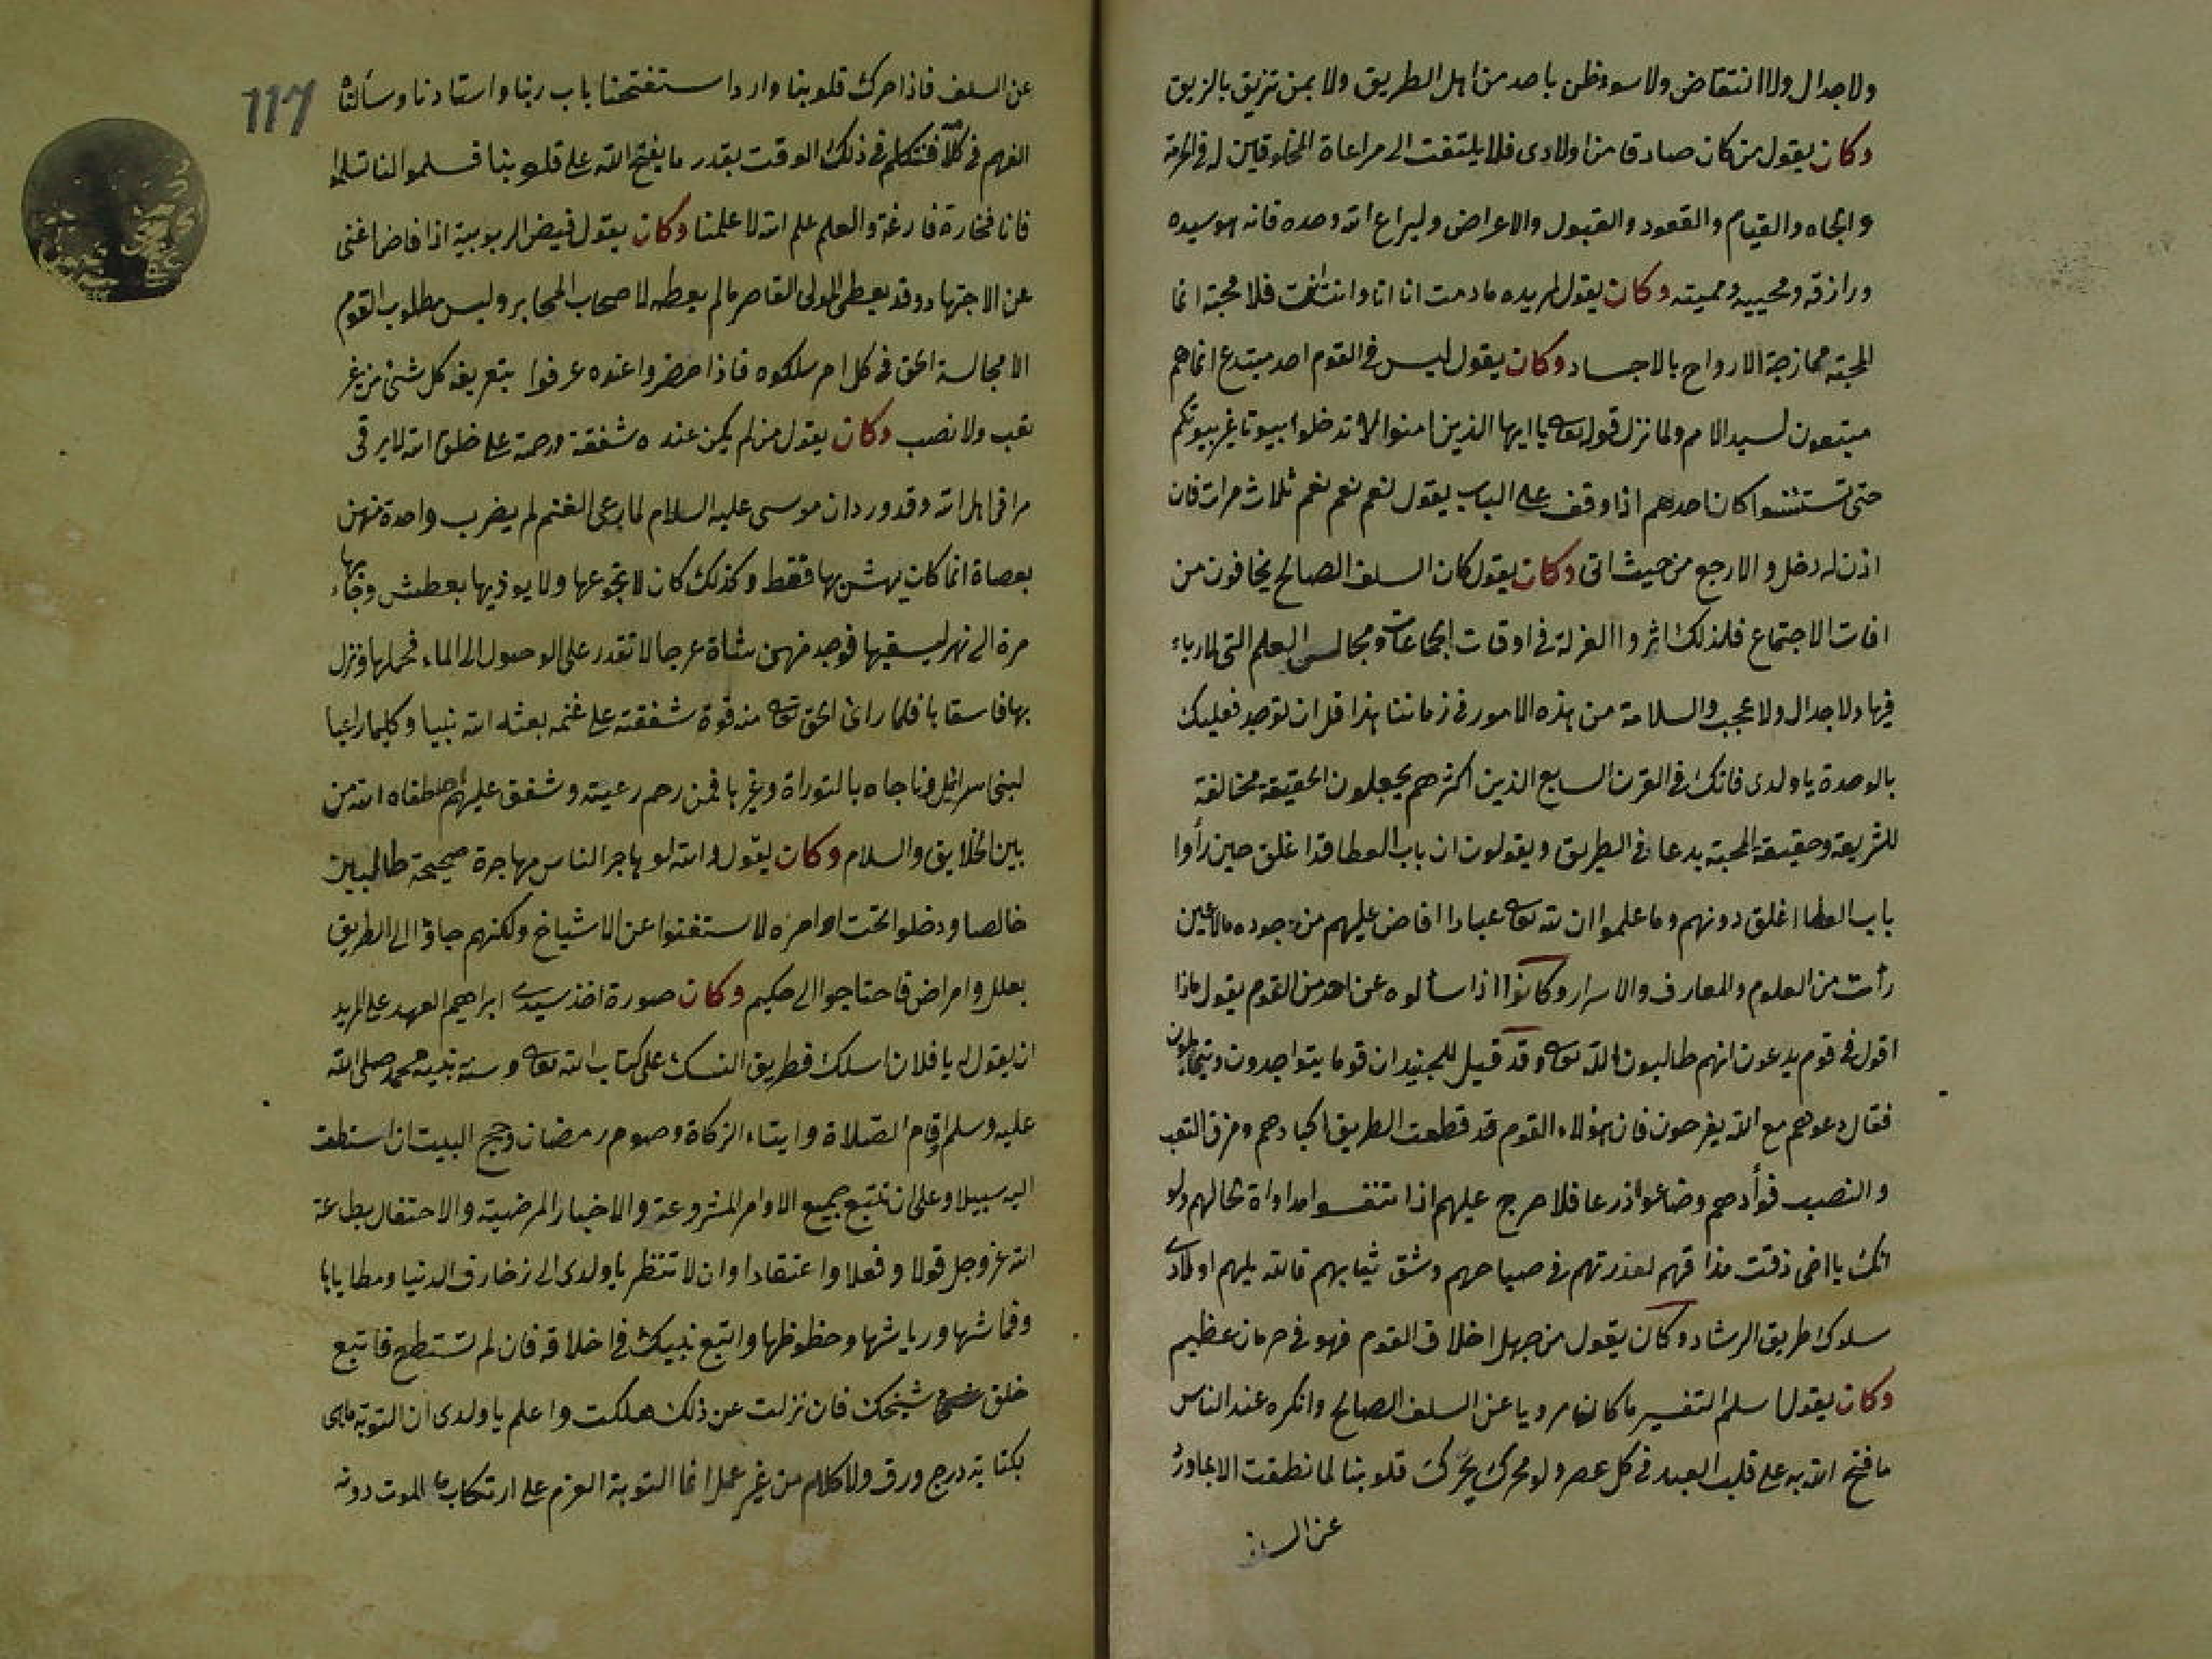 ولا جدال ولا انتقاض ولا سوء ظن باحد من اهل الطريق ولا بمن تزيق بالزيق
وكان يقول من كان صادقا من اولادى فلا يلتفت الى مراعاة المخلوقين له فى الحرمة
والجاه والقيام والقعود والقبول والاعراض وليراع الله وحده فانه هو سيده
ورازقه ومحييه ومميته وكان يقول لمريده مادمت انا انا وانت انت فلا محبة انما
المحبة ممازجة الارواح بالاجساد وكان يقول ليس فى القوم احد مبتدع انما هم
متبعون لسيد الامم ولما نزل قوله تعالى يا ايها الذين امنوا لا تدخلوا بيوتا غير بيوتكم
حتى تستئنسوا كان احدهم اذا وقف على الباب يقول نعم نعم نعم ثلاث مرات فان
اذن له دخل والا رجع من حيث اتى وكان يقول كان السلف الصالح يخافون من
افات الاجتماع فلذلك اثروا العزلة فى اوقات الجماعات ومجالس العلم التى لا رياء
فيها ولا جدال ولا عجب والسلامة من هذه الامور فى زماننا هذا قل ان توجد فعليك
بالوحدة يا ولدى فانك فى القرن السابع الذين اكثرهم يجعلون الحقيقة مخالفة
للشريعة وحقيقة المحبة بدعا فى الطريق ويقولون ان باب العطا قد اغلق حين رأوا
باب العطا اغلق دونهم وما علموا ان لله تعالى عبادا افاض عليهم من جوده مالا عين
رأت من العلوم والمعارف والاسرار وكانوا اذا سألوه عن احد من القوم يقول ماذا
اقول فى قوم يدعون انهم طالبون الله تعالى وقد قيل للجنيد ان قوما يتواجدون ويتمايلون
فقال دعوهم مع الله يفرحون فان هؤلاء القوم قد قطعت الطريق اكبادهم ومزق التعب
والنصب فوأدهم وضاعوا ذرعا فلا حرج عليهم اذا تنفسوا مداواة لحالهم ولو
انك يا اخى ذقت مذاقهم لعذرتهم فى صياحهم وشق ثيابهم فالله يلهم اولادى
سلوك طريق الرشاد وكان يقول من جهل اخلاق القوم فهو فى حرمان عظيم
وكان يقول اسلم التفسير ما كان مرويا عن السلف الصالح وانكره عند الناس
ما فتح الله به على قلب العبد فى كل عصر ولو لا محرك يحرك قلوبنا لما نطقت الا بما ورد
عن السلف
117
عن السلف فاذا حرك قلوبنا وارد استفتحنا باب ربنا واستاذنا وسألناه
الفهم فى كلامه فنتكلم فى ذلك الوقت بقدر ما يفتح الله على قلوبنا فسلموا لنا تسلموا
فانا فخارة فارغة والعلم علم الله لا علمنا وكان يقول فيض الربوبية اذا فاض اغنى
عن الاجتهاد وقد يعطى المولى القاصر ما لم يعطه لاصحاب المحابر وليس مطلوب القوم
الا مجالسة الحق فى كل امر سلكوه فاذا حضروا عنده عرفوا بتعريفه كل شئ من غير
تعب ولا نصب وكان يقول من لم يكن عنده شفقة ورحمة على خلق الله لا يرقى
مراقى اهل الله وقد ورد ان موسى عليه السلام لما رعى الغنم لم يضرب واحدة منهن
بعصاه انما كان يهش بها فقط وكذلك كان لا يجوعها ولا يوذيها بعطش وجاء بها
مرة الى نهر ليسقيها فوجد فيهن شاة عرجا لا تقدر على الوصول الى الماء فحملها ونزل
بها فاسقاها فلما رأى الحق تعالى منه قوة شفقته على غنمه بعثه الله نبيا وكليما راعيا
لبنى اسرائيل وناجاه بالتوراة وغيرها فمن رحم رعيته وشفق عليهم اصطفاه الله من
بين الخلايق والسلام وكان يقول والله لو هاجر الناس مهاجرة صحيحة طالبين
خالصا ودخلوا تحت اوامره لاستغنوا عن الاشياخ ولكنهم جاؤا الى الطريق
بعلل وامراض فاحتاجوا الى حكيم وكان صورة اخذ سيدى ابراهيم العهد على المريد
ان يقول له يا فلان اسلك طريق النسك على كتاب الله تعالى وسنة نبيه محمد صلى الله
عليه وسلم واقام الصلاة وايتاء الزكاة وصوم رمضان وحج البيت ان استطعت
اليه سبيلا وعلى ان تتبع جميع الاوامر المشروعة والاخبار المرضية والاحتفال بطاعة
الله عز وجل قولا وفعلا واعتقادا وان لا تنظر يا ولدى الى زخارف الدنيا ومطاياها
وقماشها ورياشها وحظوظها واتبع نبيك فى اخلاقه فان لم تستطع فاتبع
خلق شيخك فان نزلت عن ذلك هلكت واعلم يا ولدى ان التوبة ماهى
بكتابة درج ورق ولا كلام من غير عمل انما التوبة العزم على ارتكاب ما الموت دونه